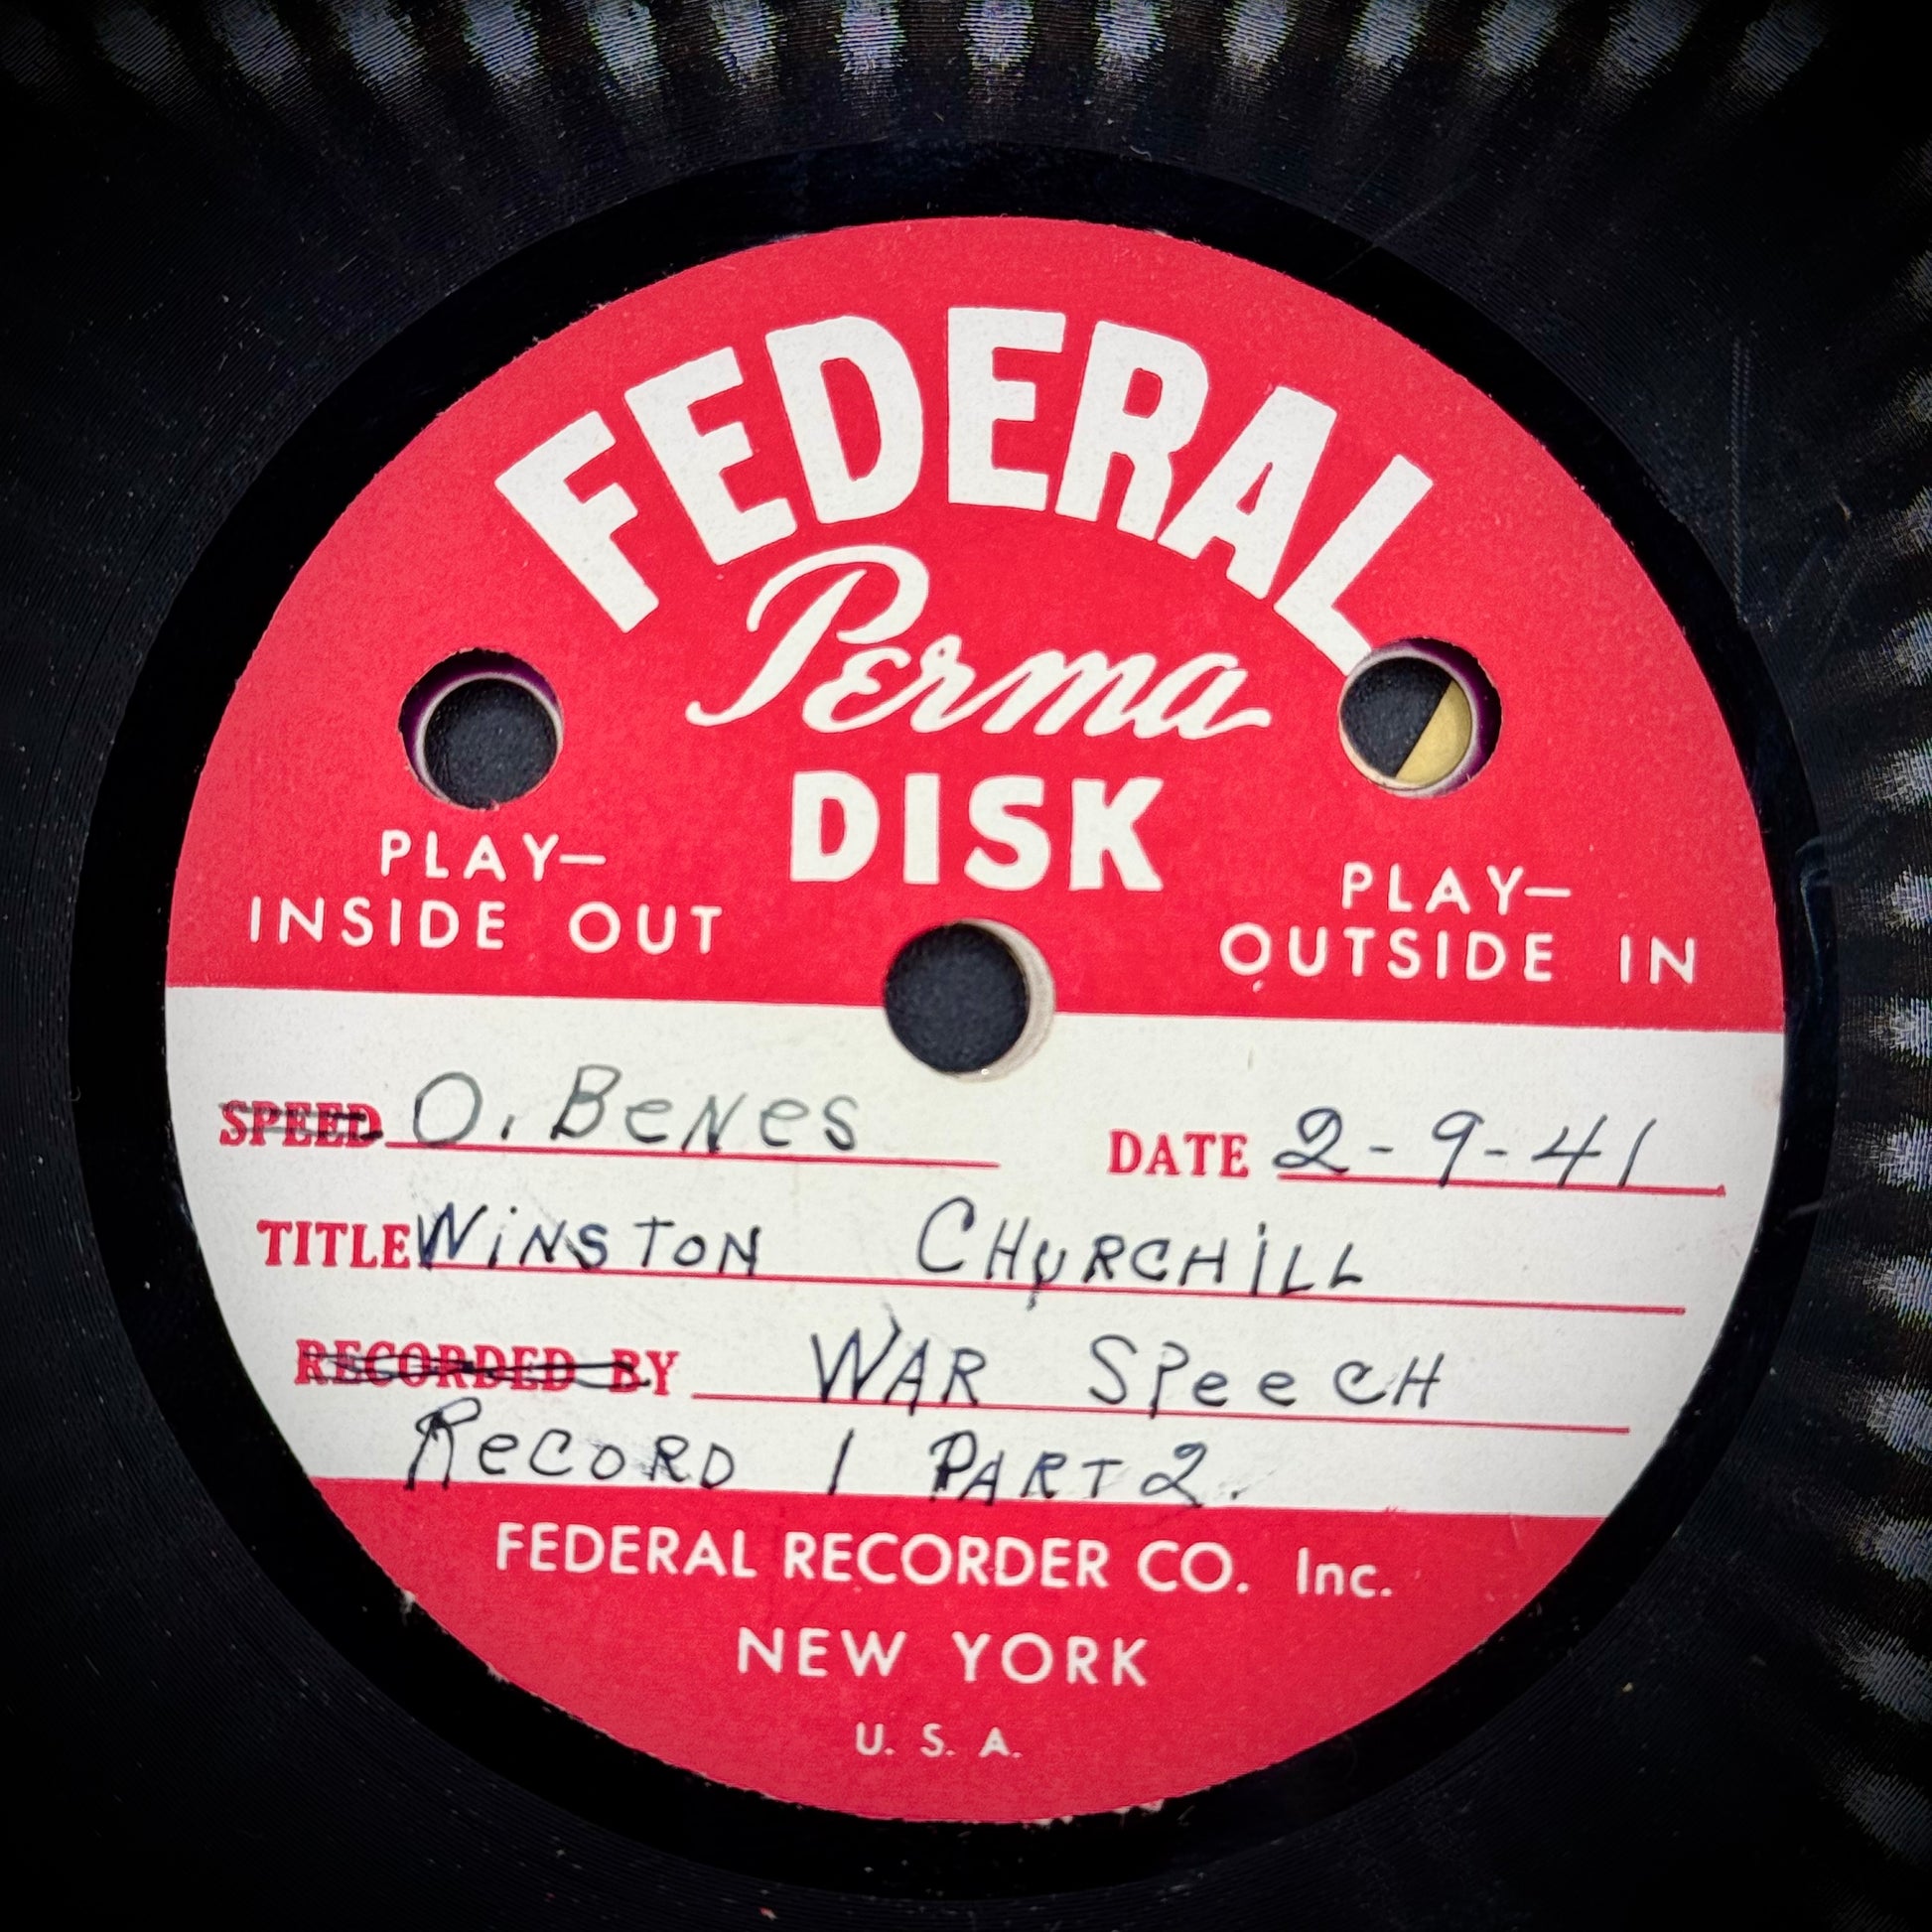 FEDERAL
Perma
DISK
PLAY—
INSIDE OUT
PLAY—
OUTSIDE IN
SPEED O. BeNes DATE 2-9-41
TITLE WiNSTON CHURCHiLL
RECORDED BY WAR SPeeCH
ReCORD 1 PART 2.
FEDERAL RECORDER CO. Inc.
NEW YORK
U. S. A.